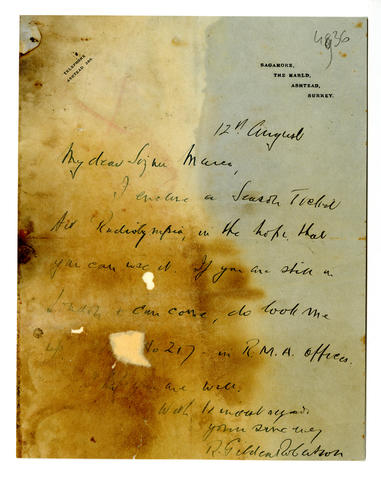 4936
TELEPHONE
ASHTEAD
SAGAMORE,
THE MARLD,
ASHTEAD,
SURREY.
12th August
My dear
I enclose a Season Ticket
Radiolympia, in the hope that
you can use it. If you are still in
London & can come, do look me
217 - in R.M.A. offices.
you are well.
With kindest regards
yours sincerely
R. Robertson